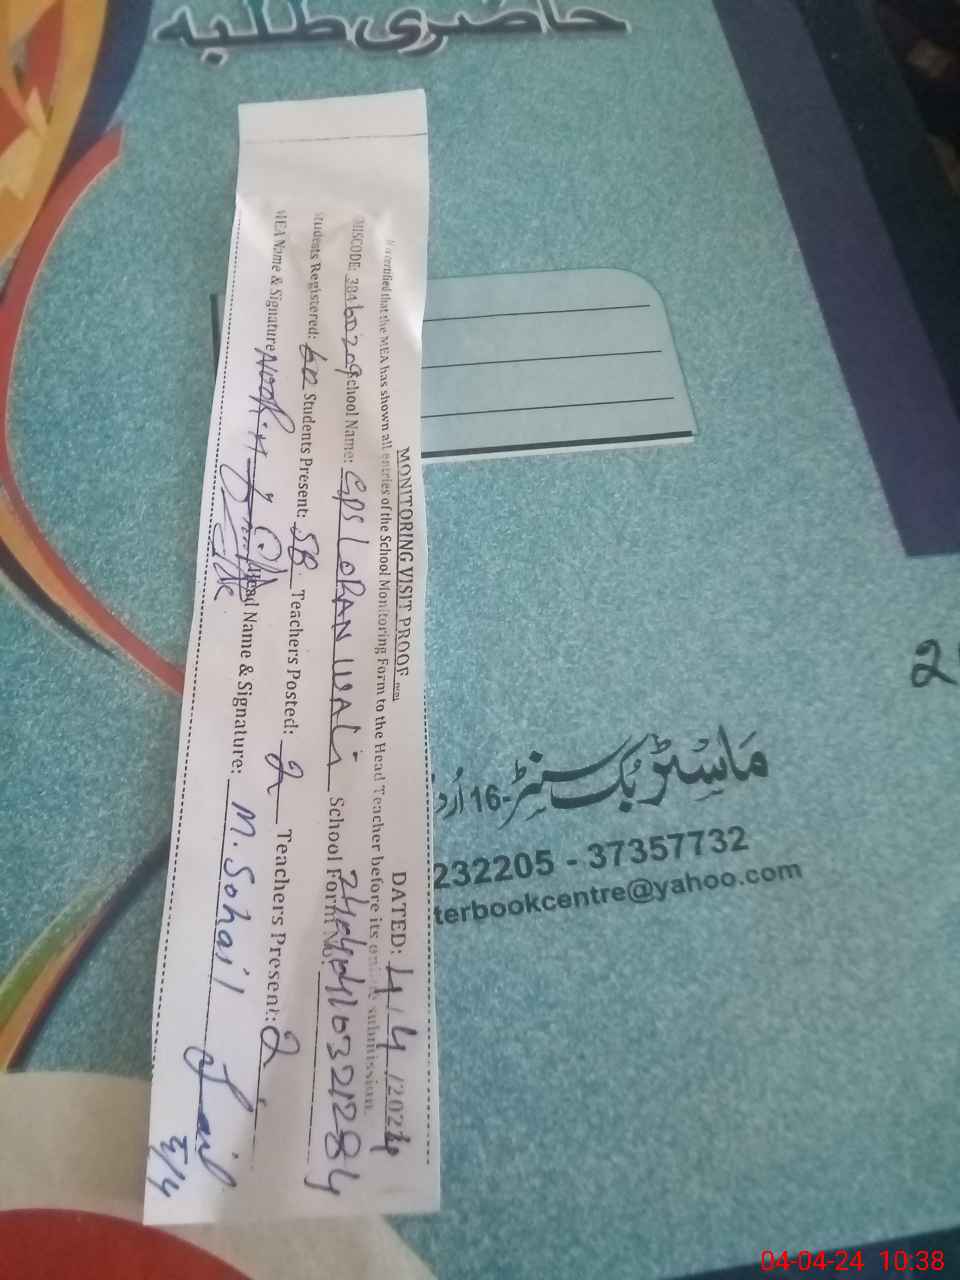 حاضری طلبہ
MONITORING VISIT PROOF
DATED: 4/4/2024
It is certified that the MEA has shown all entries of the School Monitoring Form to the Head Teacher before its submission.
School Name: GPS LORAN WALI School Form No.
Students Registered: 60 Students Present: 58 Teachers Posted: 2 Teachers Present: 2
MEA Name & Signature Head Name & Signature: M. Sohail
2
ماسٹر بک سنٹر-16
232205 - 37357732
terbookcentre@yahoo.com
04-04-24 10:38